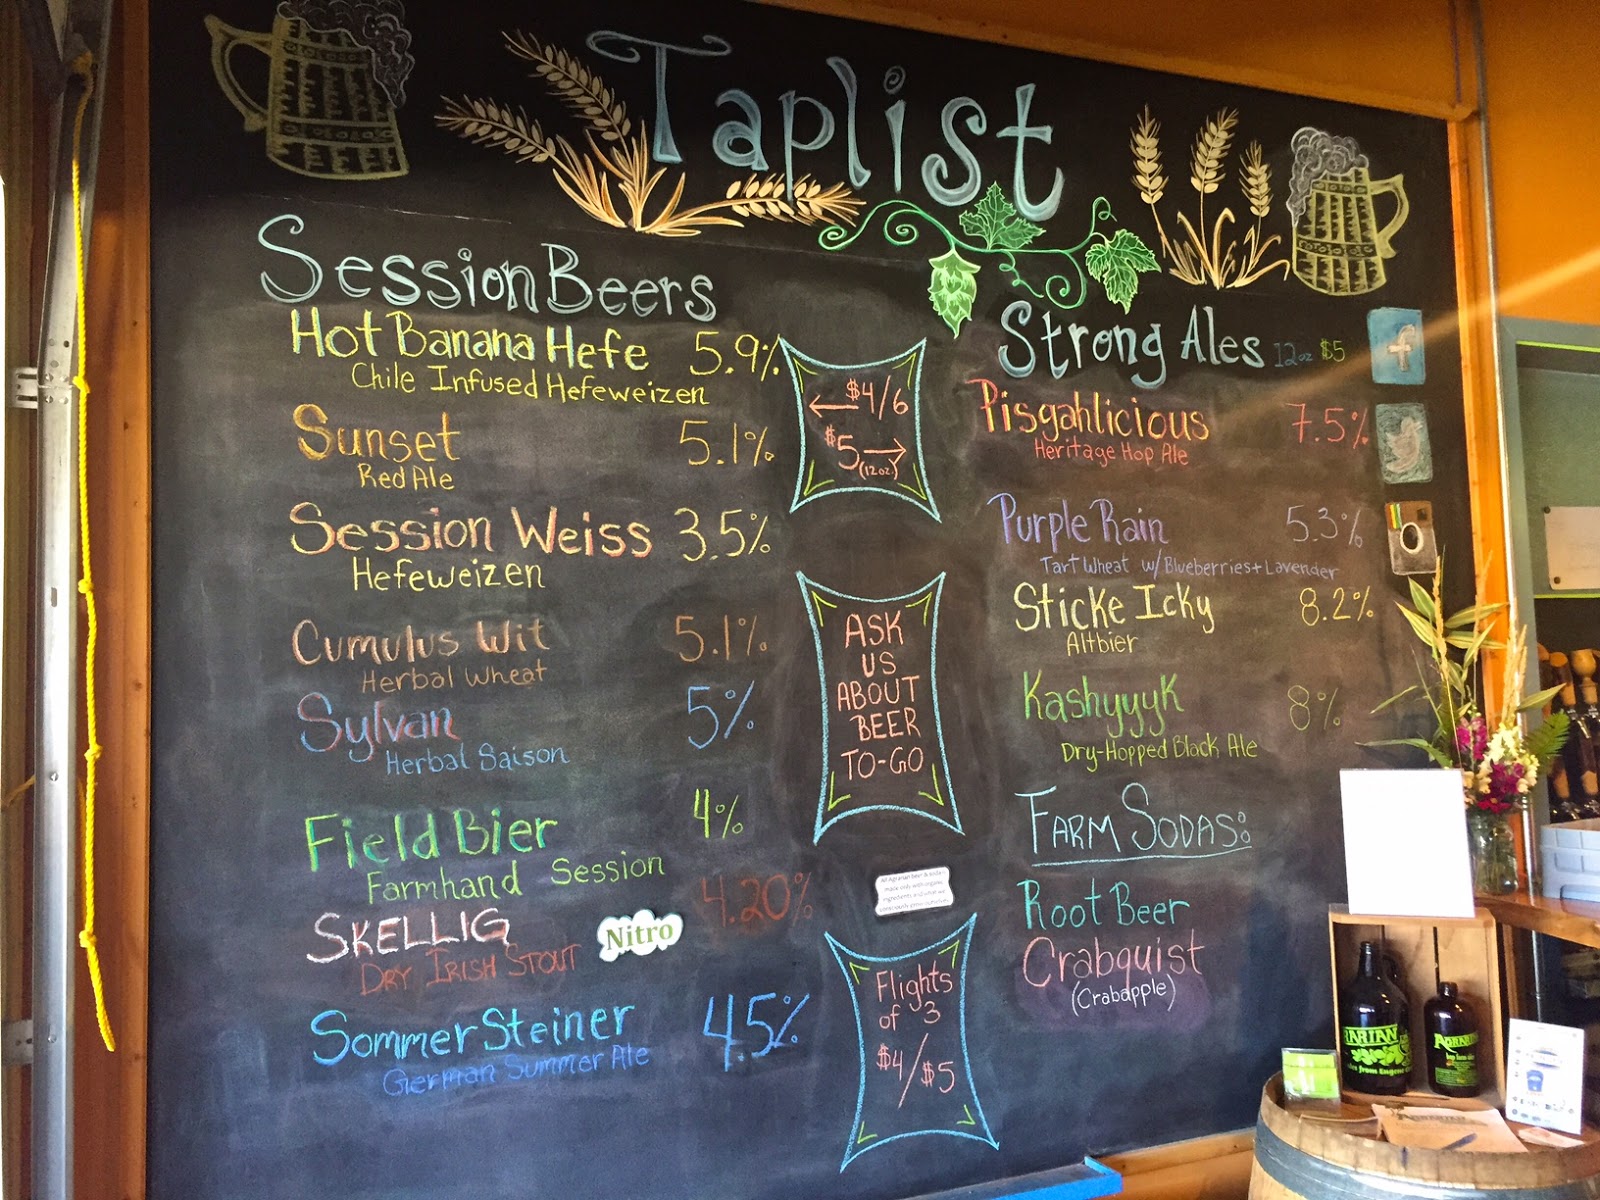 Taplist
Session Beers
Hot Banana Hefe 5.9%
Chile Infused Hefeweizen
Sunset 5.1%
Red Ale
Session Weiss 3.5%
Hefeweizen
Cumulus Wit 5.1%
Herbal Wheat
Sylvan 5%
Herbal Saison
Field Bier 4%
Farmhand Session
Skellig Nitro 4.20%
Dry Irish Stout
Sommer Steiner 4.5%
German Summer Ale
← $4/6
$5 →
(12oz)
ASK
US
ABOUT
BEER
TO-GO
All Agrarian beer & sodas
made only with organic
ingredients and what we
consciously grow ourselves.
Flights
of 3
$4/$5
Strong Ales 12oz $5
f
Pisgahlicious 7.5%
Heritage Hop Ale
Purple Rain 5.3%
Tart Wheat w/ Blueberries + Lavender
Sticke Icky 8.2%
Altbier
Kashyyyk 8%
Dry-Hopped Black Ale
Farm Sodas:
Root Beer
Crabquist
(Crabapple)
RARIAN
ales from Eugene
AGRARIAN